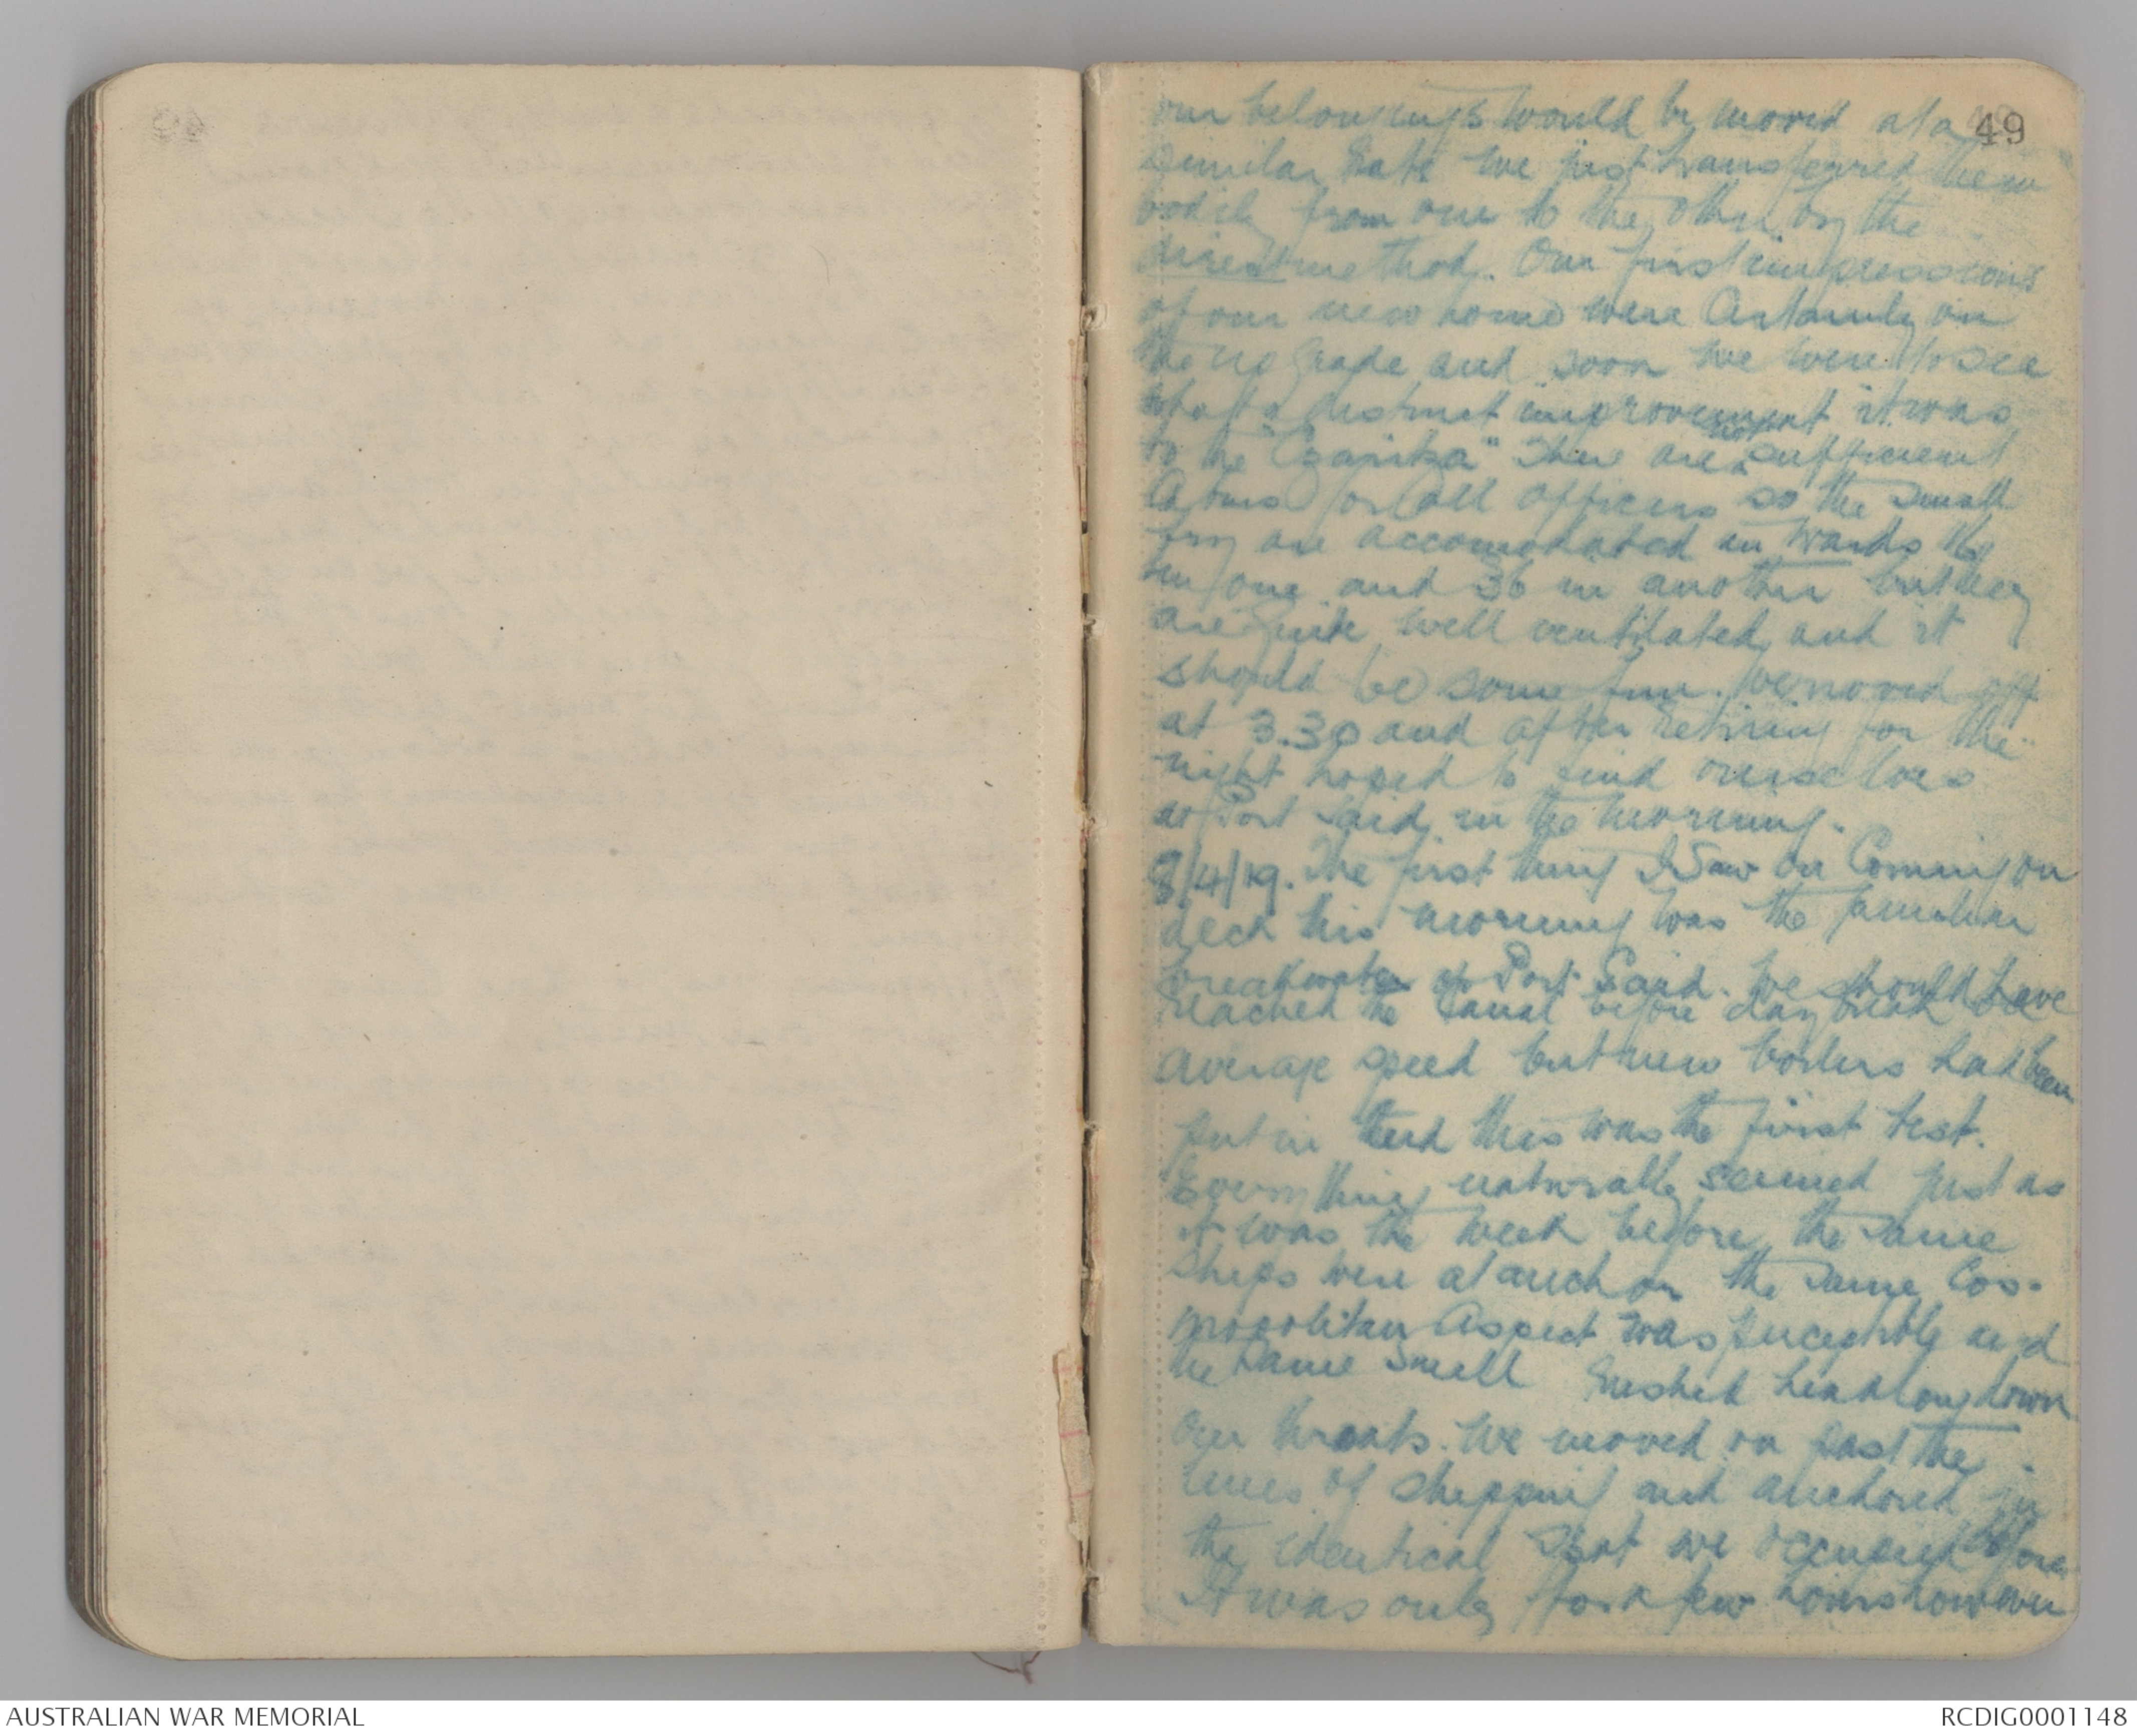 49
our belongings would be moved at a
similar rate we just transferred them
bodily from one to the other by the
direct method. Our first impressions
of our new home were Certainly on
the up grade and soon we were to see
what a distinct improvement it was
to the "Czaritza" There are not sufficient
Cabins for all officers so the small
fry are accomodated in wards
in one and 36 in another but they
are quite well ventilated and it
should be some fun. We moved off
at 3.30 and after retiring for the
night hoped to find ourselves
at Port Said in the morning.
8/4/19. The first thing I saw on Coming on
deck this morning was the familiar
breakwater at Port Said. We should have
reached the Canal before daybreak
average speed but new boilers had been
put in and this was the first test.
Everything naturally seemed just as
it was the week before, the same
ships were at anchor the same Cos-
mopolitan Aspect was perceptible and
the same smell rushed headlong down
our throats. We moved on past the
lines of shipping and anchored in
the identical spot we occupied before
It was only for a few hours however
AUSTRALIAN WAR MEMORIAL
RCDIG0001148